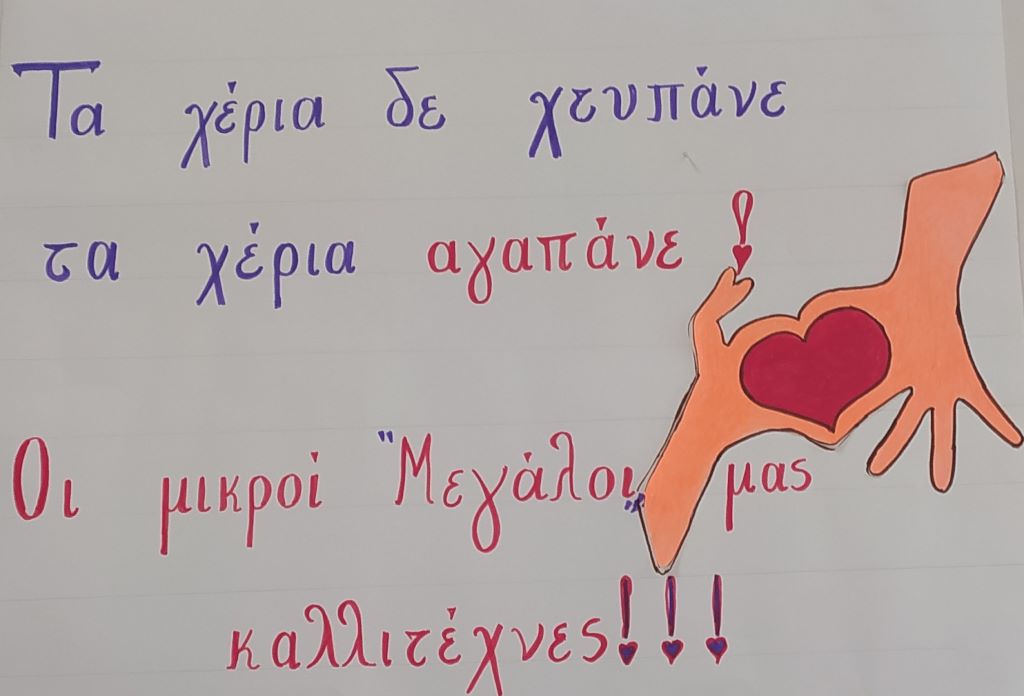 Τα χέρια δε χτυπάνε
τα χέρια αγαπάνε!
Οι μικροί "Μεγάλοι„ μας
καλλιτέχνες!!!